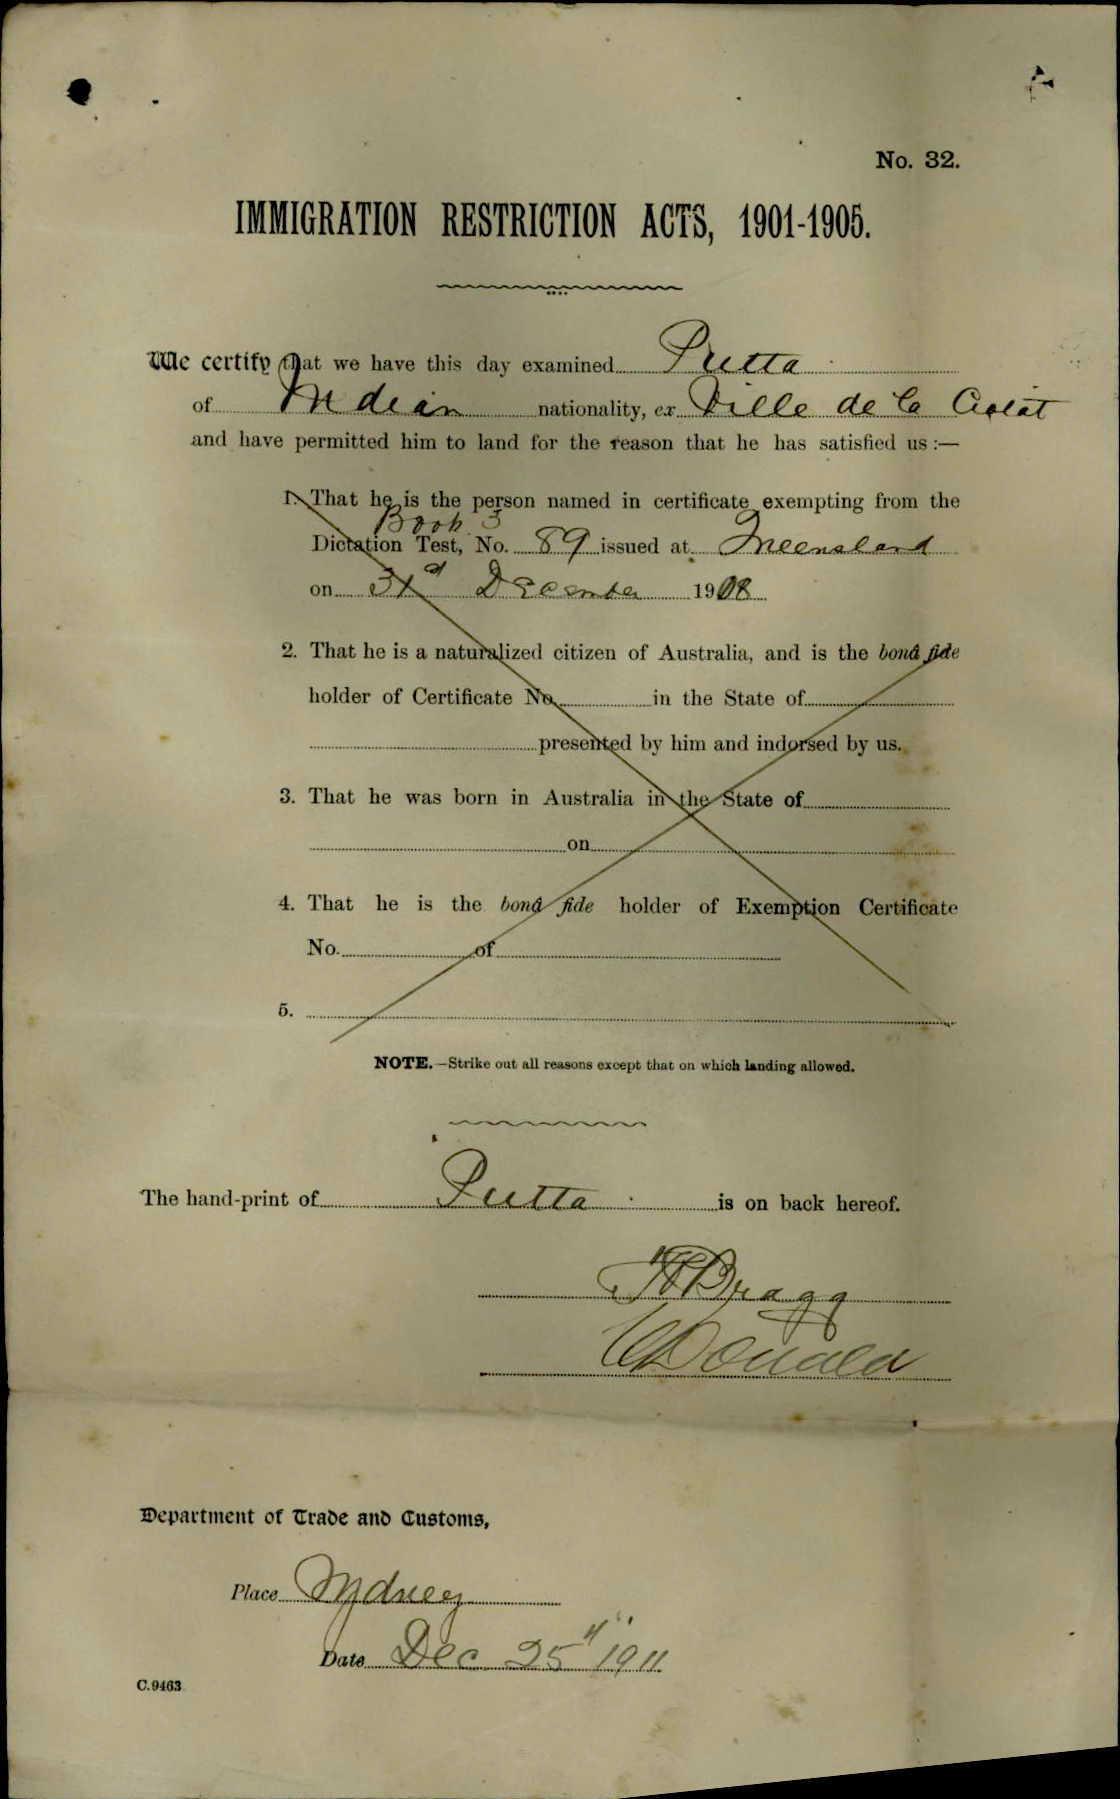 No. 32.
IMMIGRATION RESTRICTION ACTS, 1901-1905.
We certify that we have this day examined Putta
of Indian nationality, ex Ville de la Ciotat
and have permitted him to land for the reason that he has satisfied us :—
1. That he is the person named in certificate exempting from the
Book 3
Dictation Test, No. 89 issued at Queensland
on 31st December 1908
2. That he is a naturalized citizen of Australia, and is the bonâ fide
holder of Certificate No. in the State of
presented by him and indorsed by us.
3. That he was born in Australia in the State of
on
4. That he is the bonâ fide holder of Exemption Certificate
No. of
5.
NOTE.—Strike out all reasons except that on which landing allowed.
The hand-print of Putta is on back hereof.
Bragg
Donald
Department of Trade and Customs,
Place Sydney
Date Dec 25th 1911
C.9463